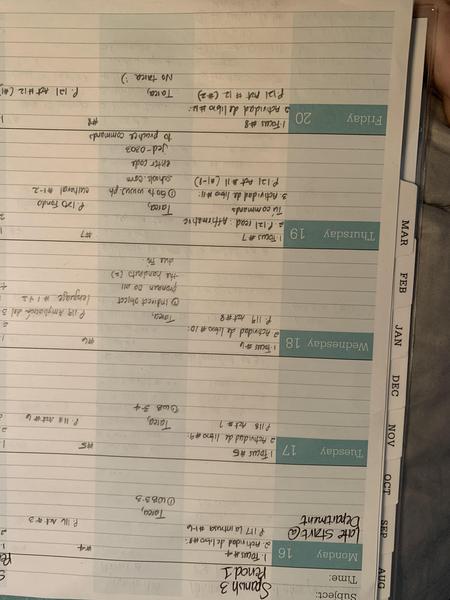 Subject:
Time:
Spanish 3
Period 1
Monday 16
Late start @
Department
1. Focus #4
2. Actividad de libro #8:
P. 117 La intrusa #1-6
Tarea,
① WB 3.3
#4
P. 116 Act #3
Tuesday 17
1. Focus #5
2. Actividad de libro #9:
P. 118 Act #7
Tarea,
① WB 3-4
#5
P. 118 Act #6
Wednesday 18
1. Focus #6
2. Actividad de libro #10:
P. 119 Act #8
Tarea,
① Indirect object
pronoun do all
the handouts (2)
due Fri
#6
P. 119 Ampliación del
lenguaje #1 y 2
Thursday 19
1. Focus #7
2. P. 121 read: Affirmative
Tú commands
3. Actividad de libro #11:
P. 121 Act #11 (#1-8)
Tarea,
① Go to www.ph
schools.com
enter code
jed-0303
to practice commands
#7
P. 120 Fondo
cultural #1-2
Friday 20
1. Focus #8
2. Actividad de libro #12:
P. 121 Act #12 (#2)
Tarea,
No tarea :)
#8
P. 121 Act #12 (#1
MAR
FEB
JAN
DEC
NOV
OCT
SEP
AUG